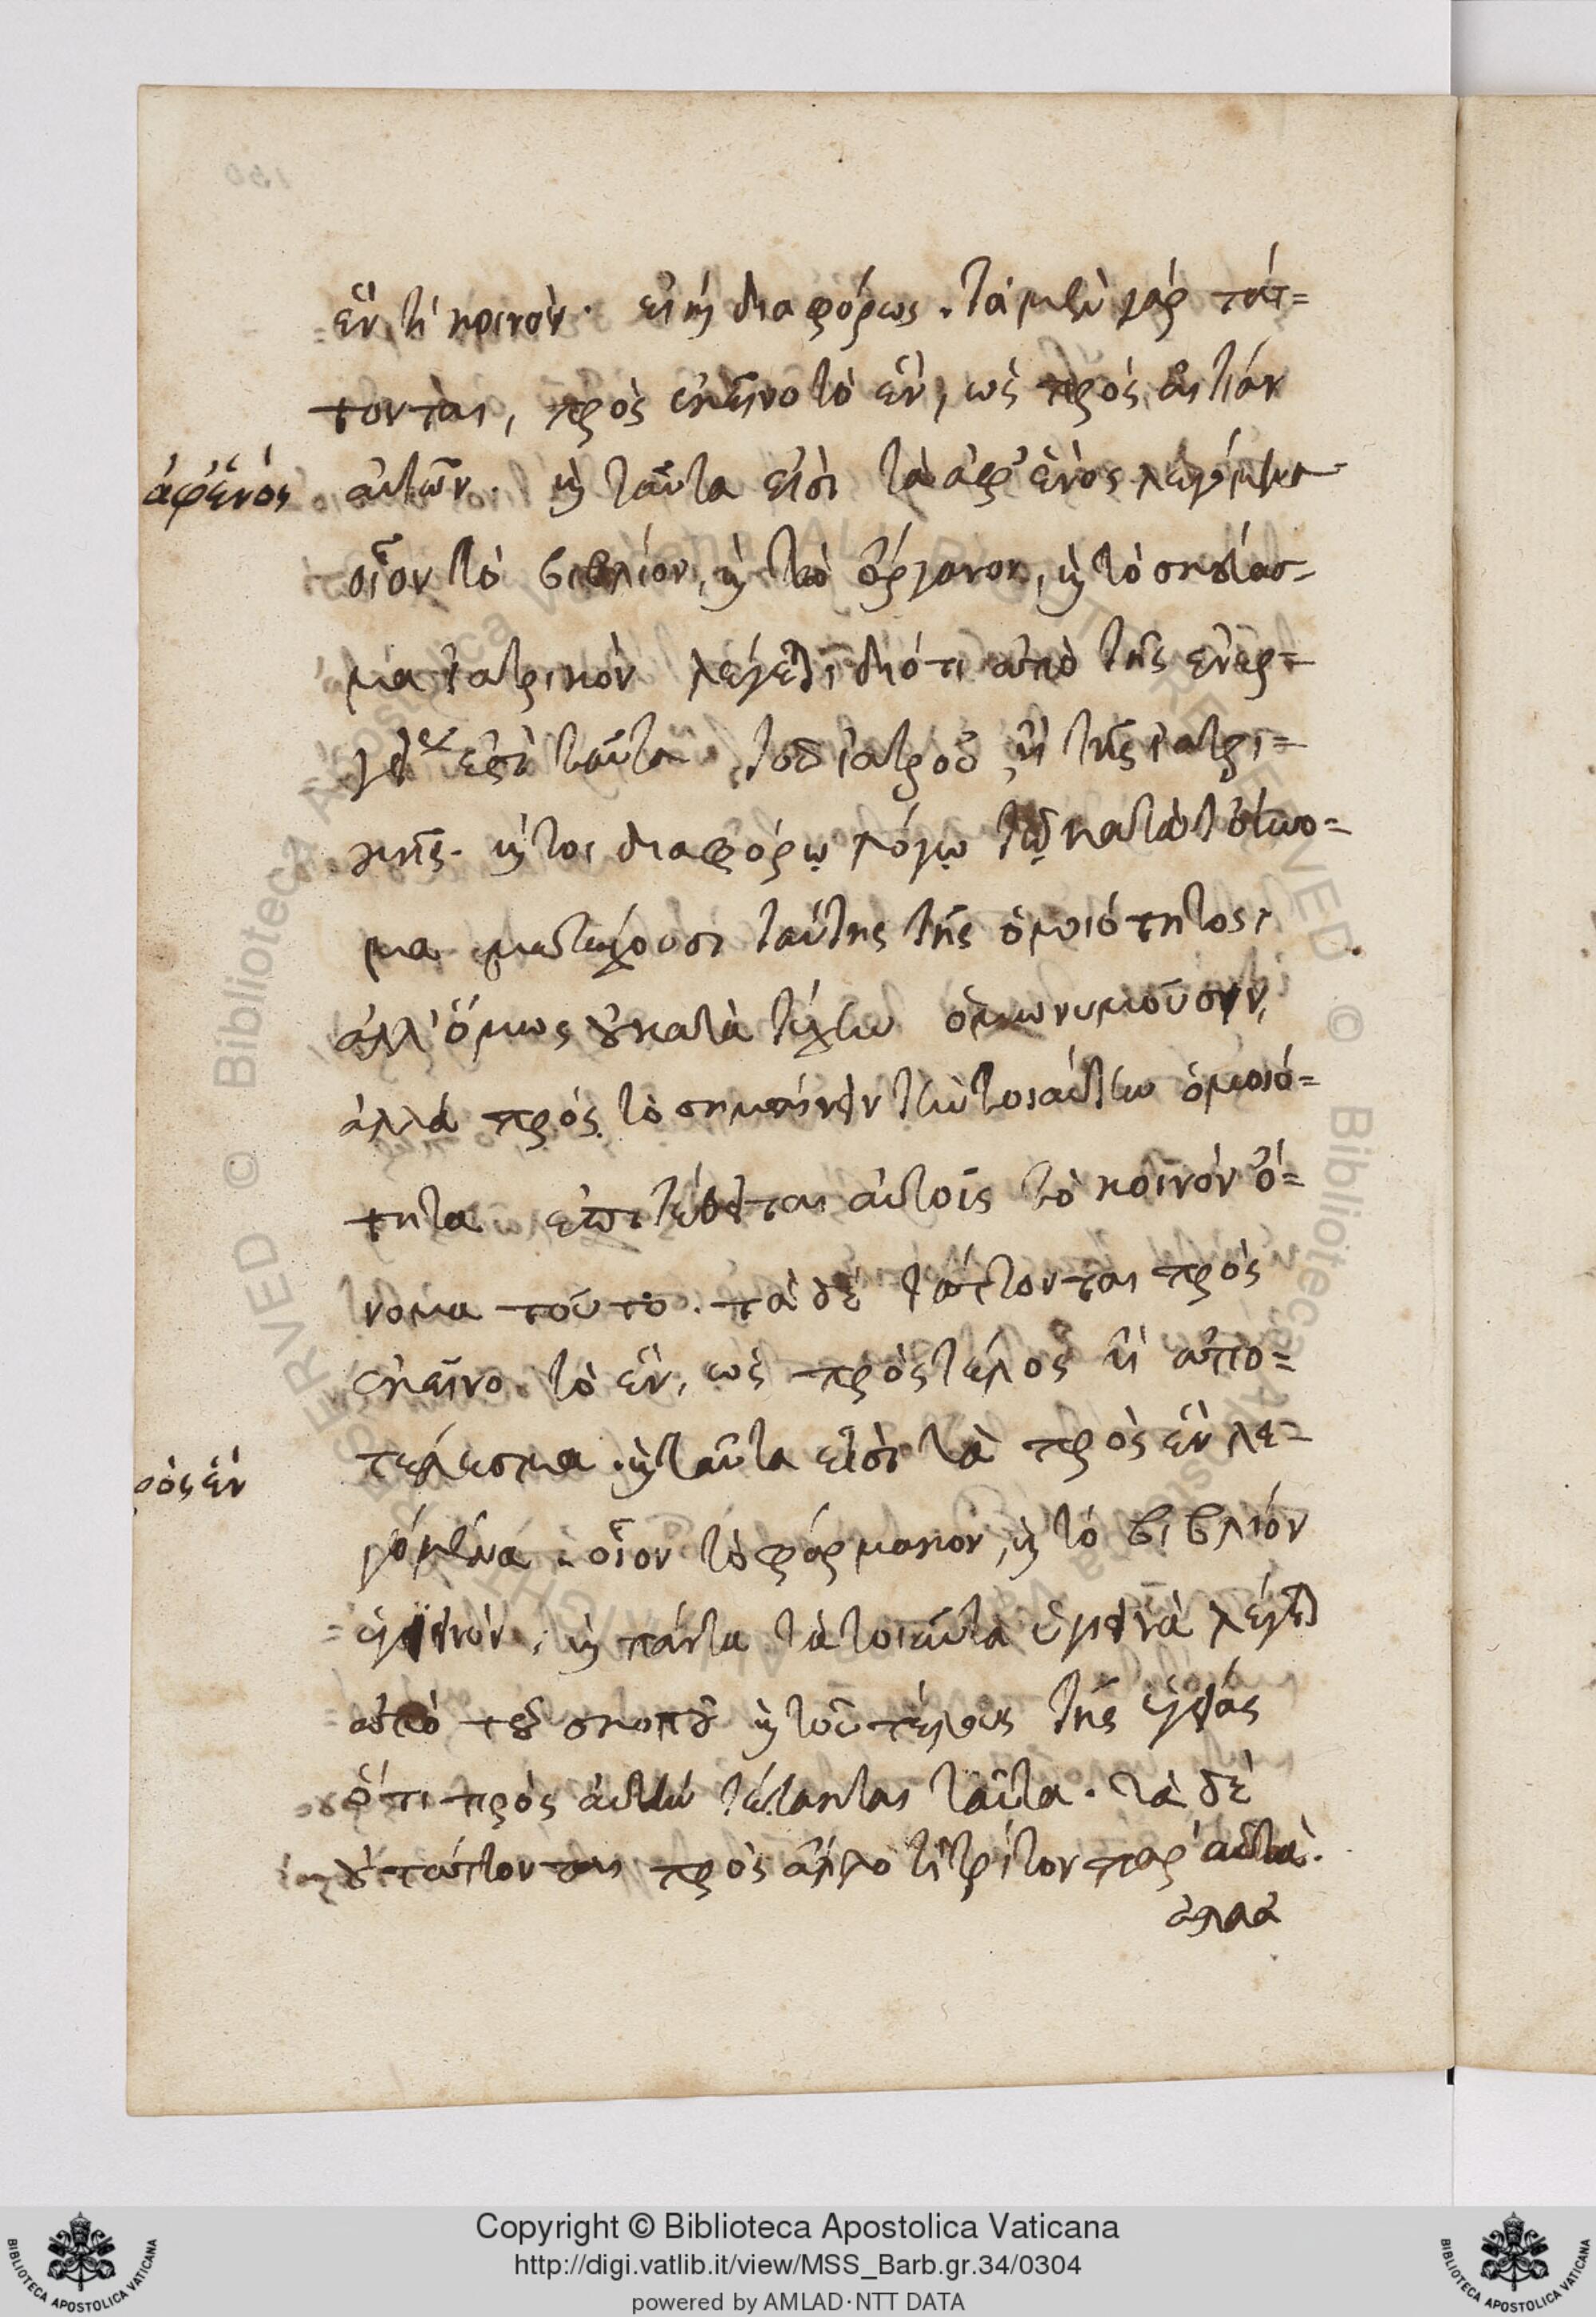 ἕν τι κοινὸν· εἰ καὶ διαφόρως. τὰ μὲν γὰρ τάτ=
τονται, πρὸς ἐκεῖνο τὸ ἕν, ὡς πρὸς αἴτιον
ἀφ' ἑνὸς
αὐτῶν. καὶ ταῦτα εἰσὶ τὰ ἀφ' ἑνὸς λεγόμενα
οἷον τὸ βιβλίον, καὶ τὸ ὄργανον, καὶ τὸ σκέπασ-
μα ἰατρικὸν λέγεται διότι ἀπὸ τῆς ἐνερ=
γείας ἐστὶ ταῦτα τοῦ ἰατροῦ, καὶ τῆς ἰατρι=
κῆς. καίτοι διαφόρῳ λόγῳ τῷ κατὰ τοὔνο=
μα μετέχουσι ταύτης τῆς ὁμοιότητος,
ἀλλ' ὅμως οὐ κατὰ τύχην ὁμωνυμοῦσιν,
ἀλλὰ πρὸς τὸ σημαίνειν τὴν τοιαύτην ὁμοιό=
τητα ἐπιτέθειται αὐτοῖς τὸ κοινὸν ὄ=
νομα τοῦτο. τὰ δὲ τάττονται πρὸς
ἐκεῖνο τὸ ἕν, ὡς πρὸς τέλος καὶ ἀπο=
τέλεσμα. καὶ ταῦτα εἰσὶ τὰ πρὸς ἓν λε=
ρὸς ἓν
γόμενα. οἷον τὸ φάρμακον, καὶ τὸ βιβλίον
ὑγιεινὸν, καὶ πάντα τὰ τοιαῦτα ὑγιεινὰ λέγεται
ἀπὸ τοῦ σκοποῦ καὶ τοῦ τέλους τῆς ὑγείας
ὅτι πρὸς αὐτὴν τέτακται ταῦτα. τὰ δὲ
οὐ τάττονται πρὸς ἄλλο τι τρίτον παρ' αὐτὰ.
ἀλλὰ
Copyright © Biblioteca Apostolica Vaticana
http://digi.vatlib.it/view/MSS_Barb.gr.34/0304
powered by AMLAD·NTT DATA